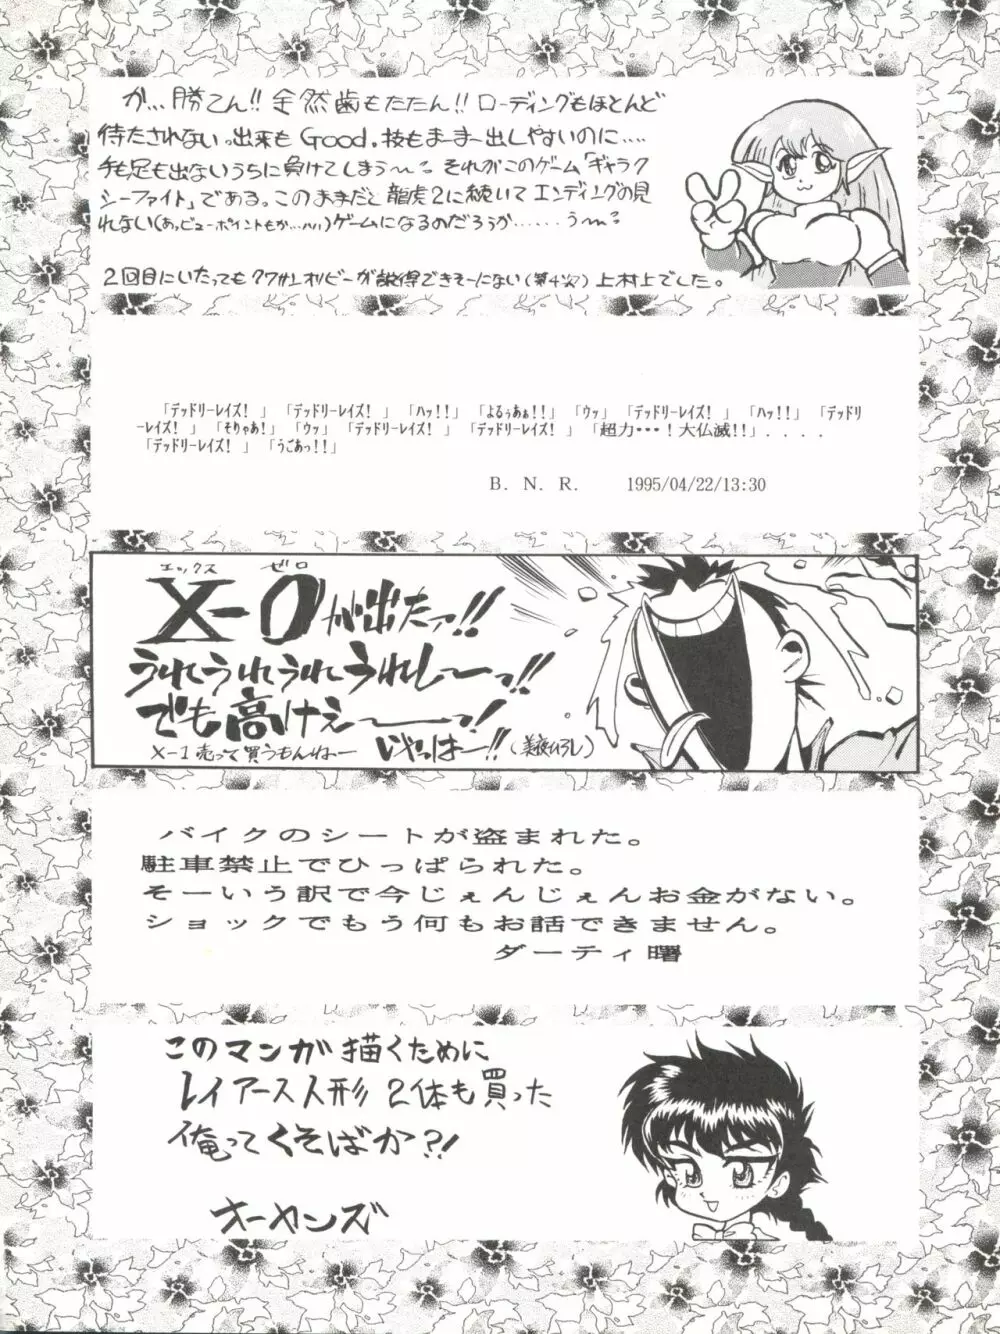 か…勝てん!!全然歯もたたん!!ローディングもほとんど
待たされないっ出来もGood.技もまーまー出しやすいのに‥‥
手も足も出ないうちに負けてしまう〜。それがこのゲーム「ギャラク
シーファイト」である。このままだと龍虎2に続いてエンディングの見
れない(あっビューポイントもか…ハハハ)ゲームになるのだろうか……う〜。
2回目にいたってもクワサンオリビーが説得できそーにない(第4次)上村上でした。
「デッドリーレイズ!」「デッドリーレイズ!」「ハッ!!」「よるぅあぁ!!」「ウッ」「デッドリーレイズ!」「ハッ!!」「デッドリ
ーレイズ!」「そりゃあ!」「ウッ」「デッドリーレイズ!」「デッドリーレイズ!」「超力・・・!大仏滅!!」....
「デッドリーレイズ!」「うごあっ!!」
B. N. R. 1995/04/22/13:30
エックス ゼロ
X-0が出たァ!!
うれうれうれうれし〜っ!!
でも高けえ〜っ!
X-1売って買うもんねー いやっほー!!
バイクのシートが盗まれた。
駐車禁止でひっぱられた。
そーいう訳で今じぇんじぇんお金がない。
ショックでもう何もお話できません。
ダーティ曙
このマンガ描くために
レイアース人形2体も買った
俺ってくそばか?!
オーメンズ